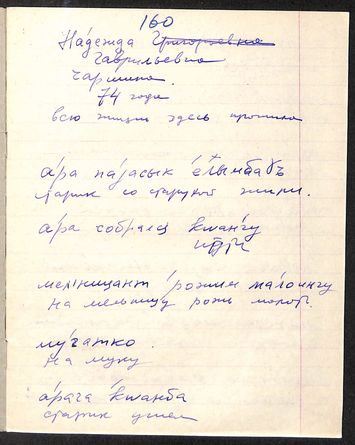 160
Надежда Григорьевна
Гаврильевна
Чаршина.
74 года
всю жизнь здесь прожила
а́ра па́јасык е́лымба
старик со старухой жили.
а́ра собрался кwа́нгу
идти
мелницант ро́жим мало́ингу
на мельницу рожь молот.
му́гатко
на муку
а́рага кwа́нба
старик ушел